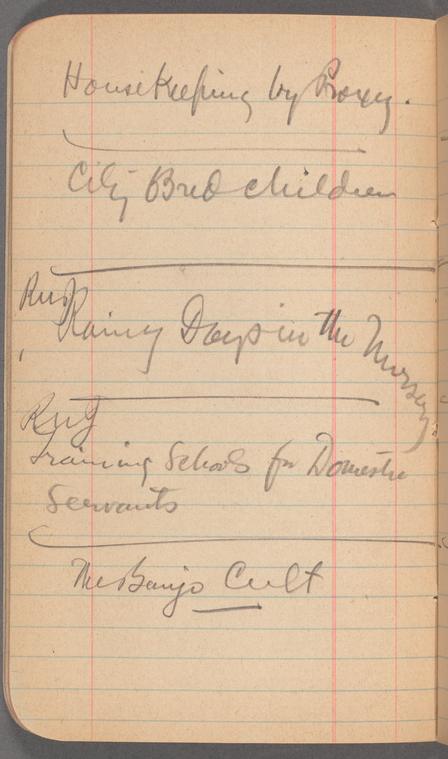 Housekeeping by Proxy.
City Bred children
Rainy Days in the Nursery
Training Schools for Domestic
Servants
The Banjo Cult